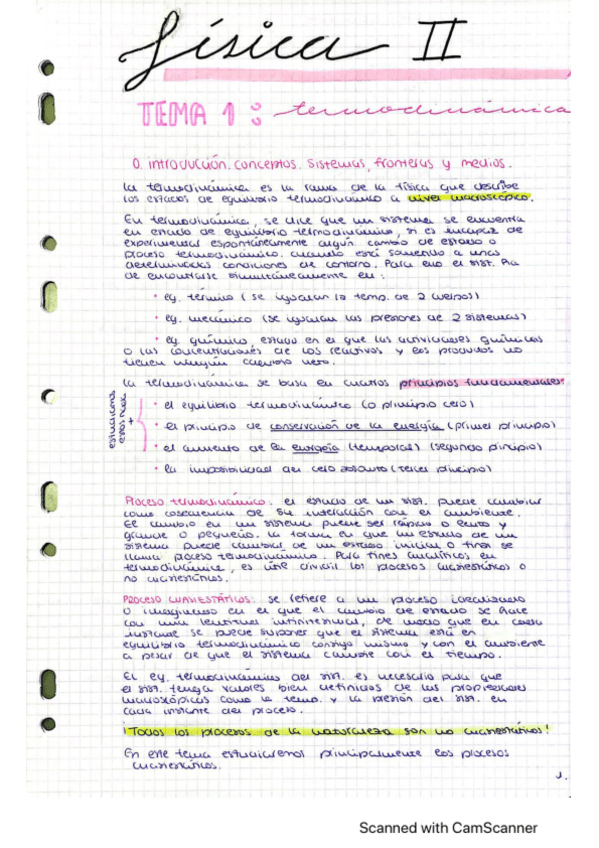 física II
TEMA 1: termodinámica
0. introducción. conceptos. sistemas, fronteras y medios.
La termodinámica es la rama de la física que describe
los estados de equilibrio termodinámico a nivel macroscópico.
En termodinámica, se dice que un sistema se encuentra
en estado de equilibrio termodinámico, si es incapaz de
experimentar espontáneamente algún cambio de estado o
proceso termodinámico cuando está sometido a unas
determinadas condiciones de contorno. Para ello el sist. ha
de encontrarse simultáneamente en:
• eq. térmico (se igualan la temp. de 2 cuerpos)
• eq. mecánico (se igualan las presiones de 2 sistemas)
• eq. químico, estado en el que las actividades químicas
o las concentraciones de los reactivos y los productos no
tienen ningún cambio neto.
La termodinámica se basa en cuatro principios fundamentales:
• el equilibrio termodinámico (o principio cero)
• el principio de conservación de la energía (primer principio)
• el aumento de la entropía (temporal) (segundo principio)
• la imposibilidad del cero absoluto (tercer principio)
estudiaremos
estos
Proceso termodinámico: el estado de un sist. puede cambiar
como consecuencia de su interacción con el ambiente.
El cambio en un sistema puede ser rápido o lento y
grande o pequeño. La forma en que un estado de un
sistema puede cambiar de un estado inicial a final se
llama proceso termodinámico. Para fines analíticos en
termodinámica, es útil dividir los procesos cuasiestáticos o
no cuasiestáticos.
PROCESO CUASIESTÁTICOS: se refiere a un proceso idealizado
o imaginario en el que el cambio de estado se hace
con una lentitud infinitesimal, de modo que en cada
instante se puede suponer que el sistema está en
equilibrio termodinámico consigo mismo y con el ambiente
a pesar de que el sistema cambie con el tiempo.
El eq. termodinámico del sist. es necesario para que
el sist. tenga valores bien definidos de las propiedades
macroscópicas como la temp. y la presión del sist. en
cada instante del proceso.
¡Todos los procesos de la naturaleza son no cuasiestáticos!
En este tema estudiaremos principalmente los procesos
cuasiestáticos.
1.
Scanned with CamScanner